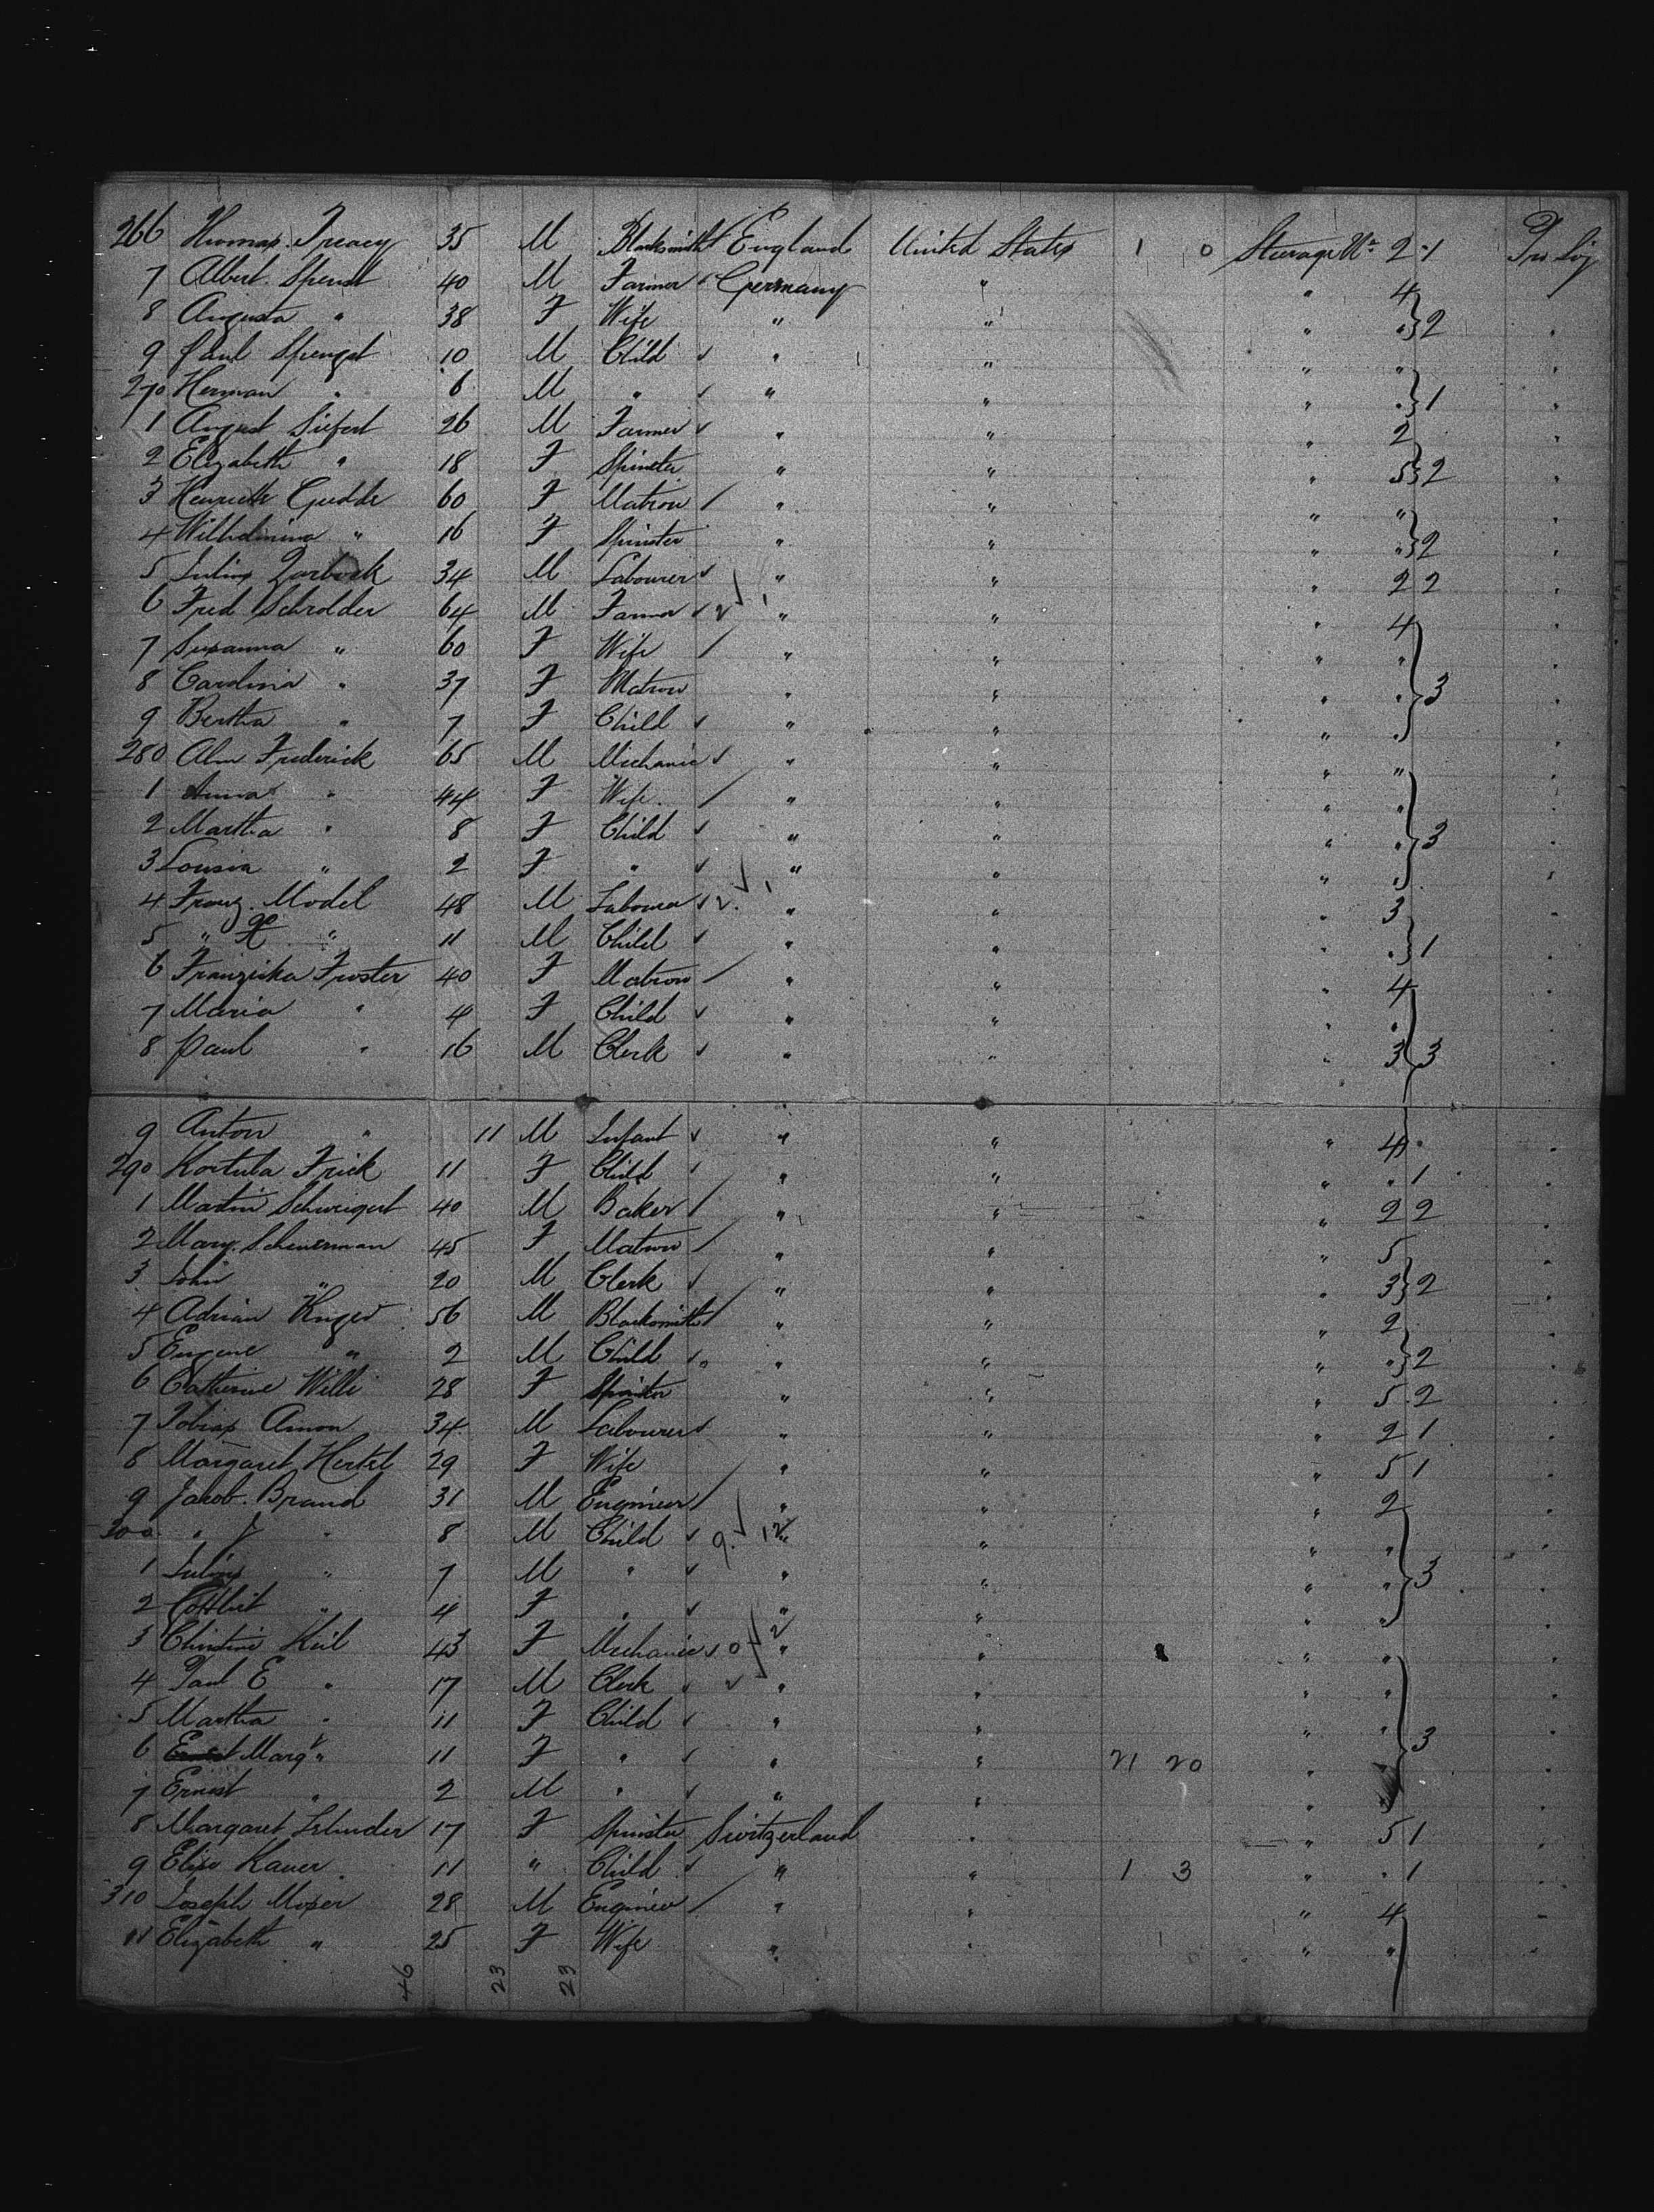 266 Thomas Treacy 35 M Blacksmith England United States 1 0 Steerage No 2 1
7 Albert 40 M Farmer Germany " " 4
8 Augusta " 38 F Wife " " " " 2
9 Paul 10 M Child " " " "
270 Herman " 6 M " " " " " 1
1 August Siefert 26 M Farmer " " " 2
2 Elizabeth " 18 F Spinster " " " 5 2
3 Henriette Gudde 60 F Matron " " " "
4 Wilhelmina " 16 F Spinster " " " " 2
5 Julius Zarbock 34 M Labourer " " " 2 2
6 Fred Schrolder 64 M Farmer " " " 4
7 Susanna " 60 F Wife " " " "
8 Carolina " 37 F Matron " " " " 3
9 Bertha " 7 F Child " " " "
280 Frederick 65 M Mechanic " " " "
1 Anna " 44 F Wife " " " "
2 Martha " 8 F Child " " " " 3
3 Lousia " 2 F " " " " "
4 Franz Model 48 M Labourer " " " 3
5 " " 11 M Child " " " " 1
6 Franziska Froster 40 F Matron " " " 4
7 Maria " 4 F Child " " " "
8 Paul " 16 M Clerk " " " 3 3
9 Anton " 11 M Infant " " " 4
290 Frick 11 F Child " " " " 1
1 Martin Schweigert 40 M Baker " " " 2 2
2 Mary Scheuerman 45 F Matron " " " 5
3 John " 20 M Clerk " " " 3 2
4 Adrian 56 M Blacksmith " " " 2
5 Eugene " 2 M Child " " " " 2
6 Catherine Willi 28 F Spinster " " " 5 2
7 Tobias Amon 34 M Labourer " " " 2 1
8 Margaret Hertel 29 F Wife " " " 5 1
9 Jacob Brand 31 M Engineer " " " 2
300 " J " 8 M Child " " " "
1 Julius " 7 M " " " " " 3
2 Gottliet " 4 F " " " " "
3 Christine Keil 43 F Mechanic " " " "
4 Paul E " 17 M Clerk " " " "
5 Martha " 11 F Child " " " "
6 Marg " 11 F " " " 21 20 " 3
7 Ernest " 2 M " " " "
8 Margaret 17 F Spinster Switzerland " " 5 1
9 Elise Kauer 11 " Child " " 1 3 " " 1
310 Joseph Moser 28 M Engineer " " " 4
11 Elizabeth " 25 F Wife " " " "
46 23 23